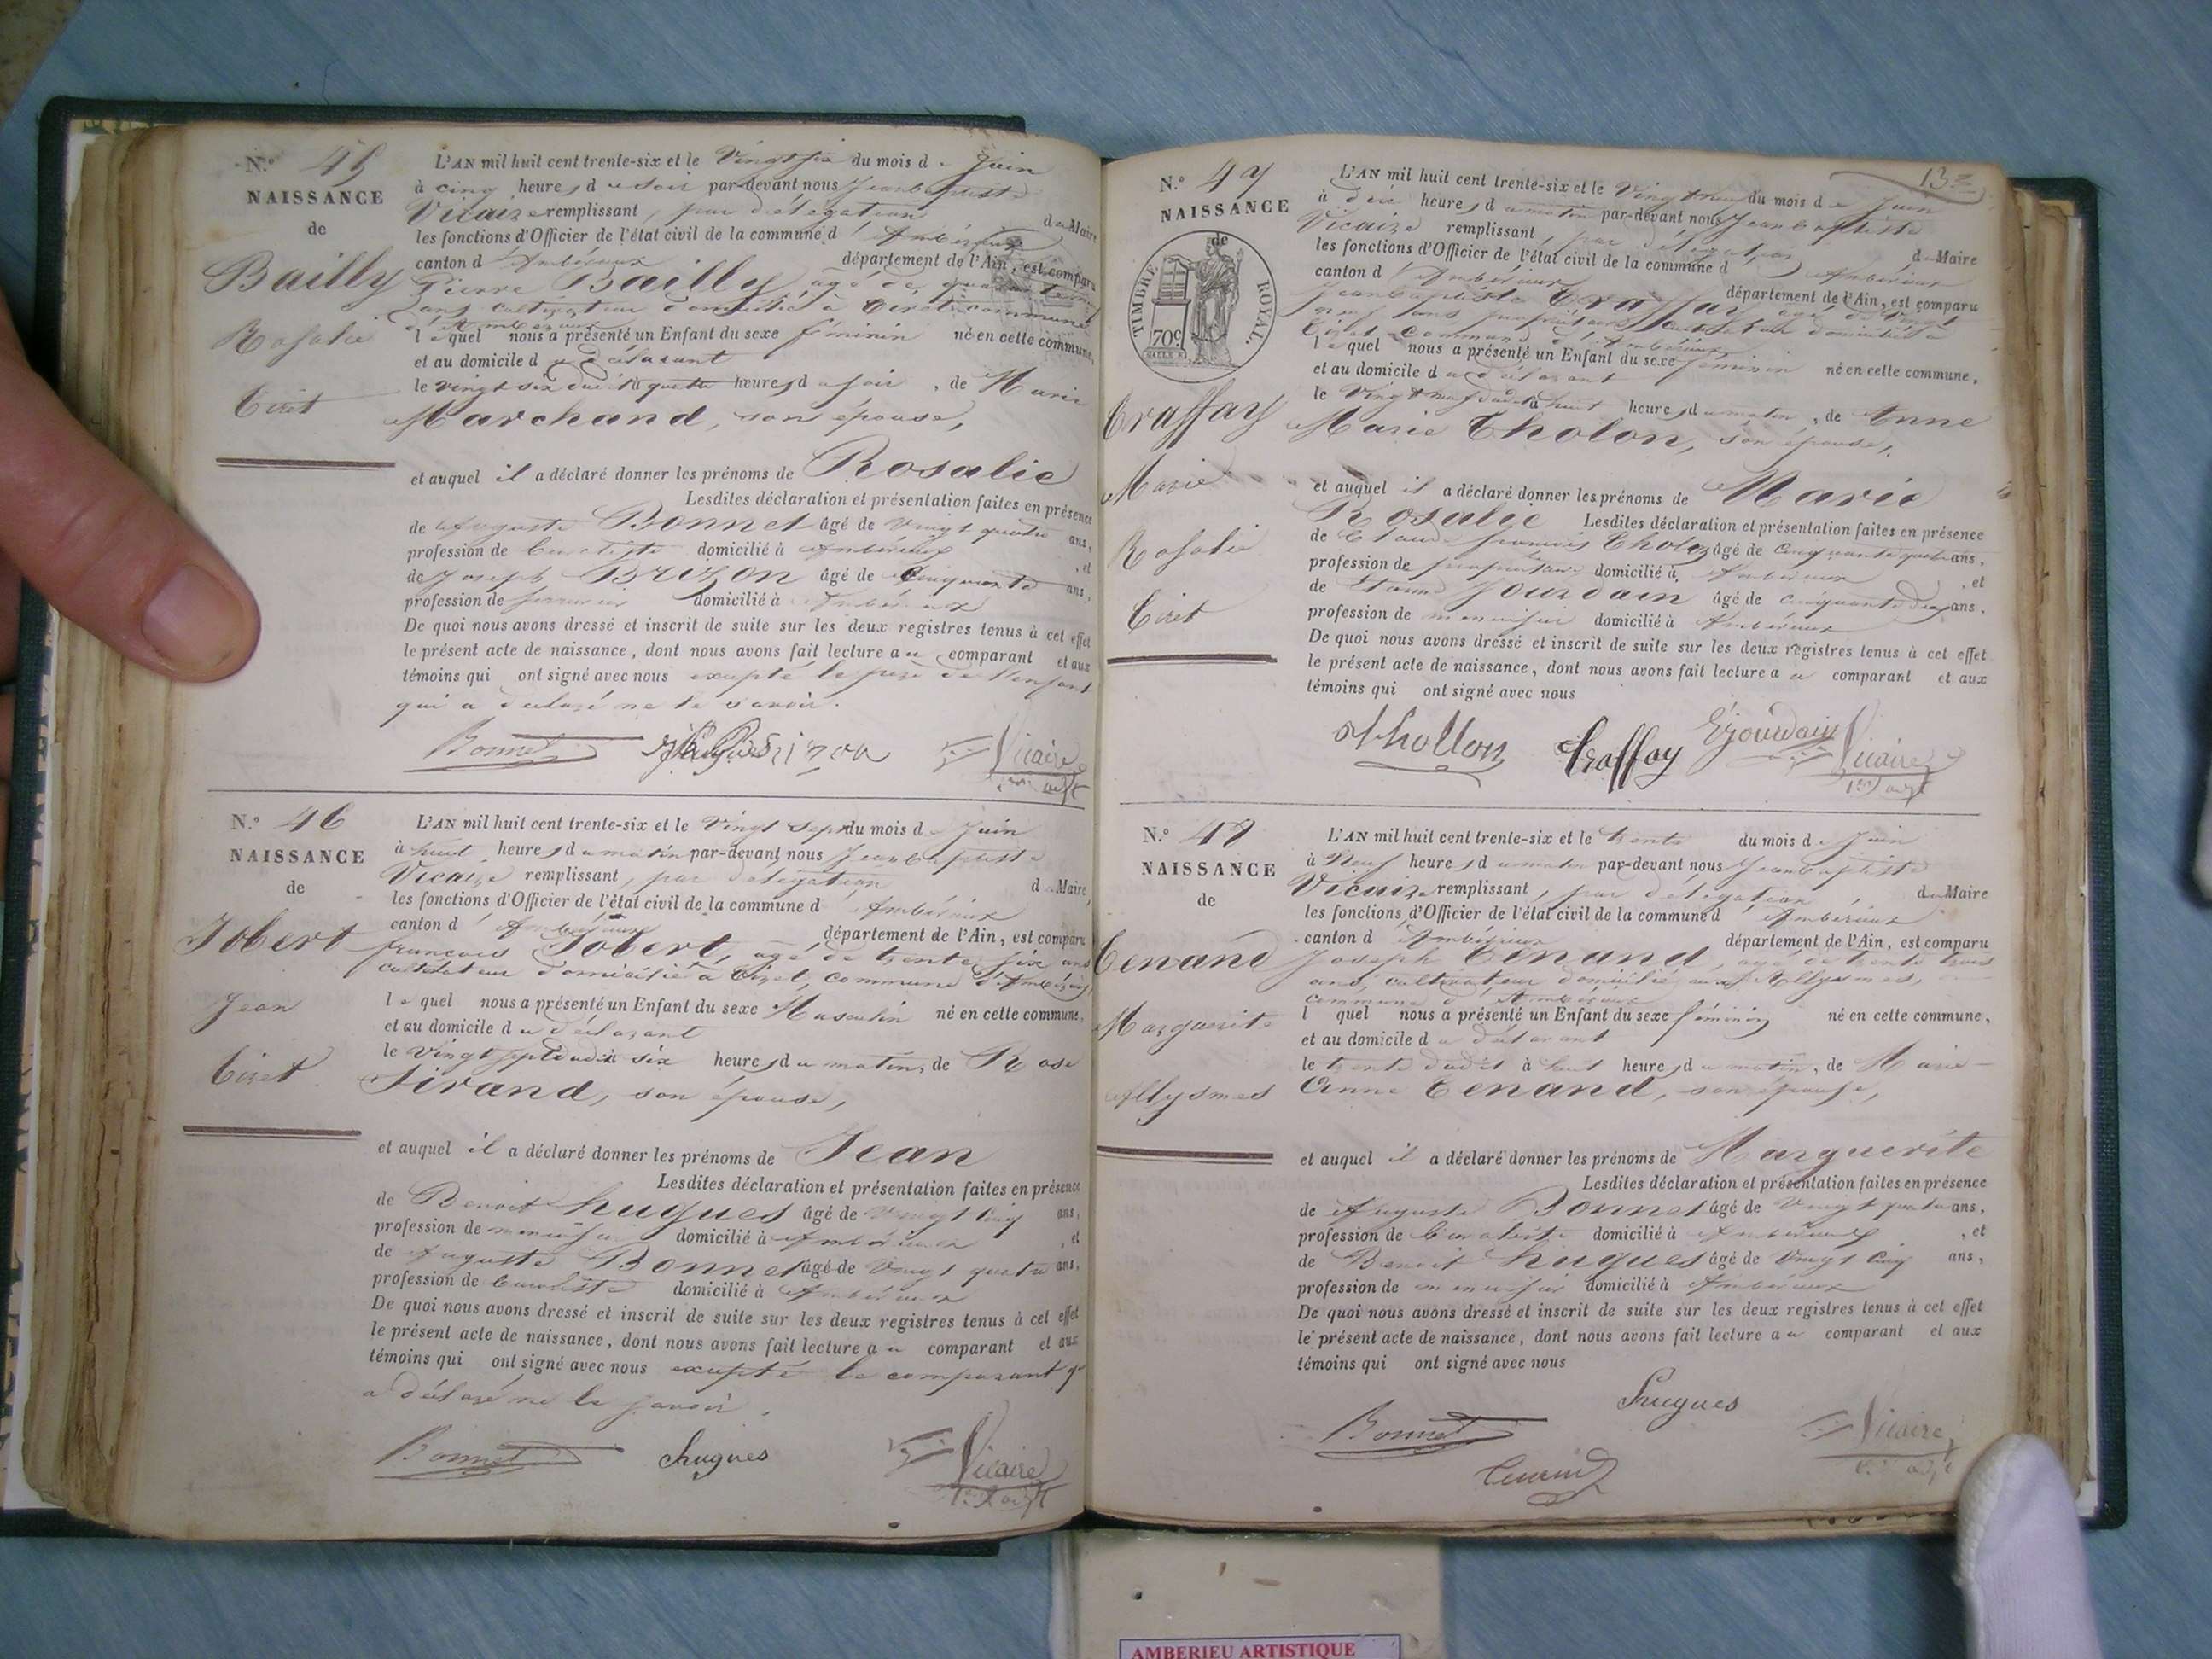 N.° 45
NAISSANCE
de
Bailly
Rosalie
Tiret
L'AN mil huit cent trente-six et le Vingt six du mois de Juin
à cinq heures du soir par-devant nous Jean baptiste
Vicaire remplissant, par délégation du Maire
les fonctions d'Officier de l'état civil de la commune d'Ambérieux
canton d'Ambérieux département de l'Ain, est comparu
Pierre Bailly, âgé de
ans cultivateur domicilié à Tiret commune
d'Ambérieux
lequel nous a présenté un Enfant du sexe féminin né en cette commune,
et au domicile du déclarant
le vingt six dudit à quatre heures du soir, de Marie
Marchand, son épouse,
et auquel il a déclaré donner les prénoms de Rosalie
Lesdites déclaration et présentation faites en présence
de Auguste Bonnet âgé de Vingt quatre ans,
profession de domicilié à Ambérieux , et
de Joseph Brizon âgé de Cinquante ans,
profession de domicilié à Ambérieux
De quoi nous avons dressé et inscrit de suite sur les deux registres tenus à cet effet
le présent acte de naissance, dont nous avons fait lecture au comparant et aux
témoins qui ont signé avec nous excepté le père de l'enfant
qui a déclaré ne le savoir.
Bonnet Brizon Vicaire
N.° 46
NAISSANCE
de
Jobert
Jean
Tiret
L'AN mil huit cent trente-six et le Vingt Sept du mois de Juin
à huit heures du matin par-devant nous Jean baptiste
Vicaire remplissant, par délégation du Maire,
les fonctions d'Officier de l'état civil de la commune d'Ambérieux
canton d'Ambérieux département de l'Ain, est comparu
francois Jobert, âgé de trente six ans
cultivateur domicilié à Tiret, commune d'Ambérieux,
lequel nous a présenté un Enfant du sexe Masculin né en cette commune,
et au domicile du déclarant
le Vingt sept dudit à six heures du matin, de Rose
Sirand, son épouse,
et auquel il a déclaré donner les prénoms de Jean
Lesdites déclaration et présentation faites en présence
de Benoit hugues âgé de Vingt Cinq ans,
profession de menuisier domicilié à Ambérieux , et
de Auguste Bonnet âgé de Vingt quatre ans,
profession de domicilié à Ambérieux
De quoi nous avons dressé et inscrit de suite sur les deux registres tenus à cet effet
le présent acte de naissance, dont nous avons fait lecture au comparant et aux
témoins qui ont signé avec nous excepté le comparant qui
a déclaré ne le savoir.
Bonnet hugues Vicaire
13
N.° 47
NAISSANCE
de
TIMBRE ROYAL.
70c
Traffay
Marie
Rosalie
Tiret
L'AN mil huit cent trente-six et le Vingt neuf du mois de Juin
à dix heures du matin par-devant nous Jean baptiste
Vicaire remplissant, par délégation du Maire
les fonctions d'Officier de l'état civil de la commune d'Ambérieux
canton d'Ambérieux département de l'Ain, est comparu
Jean baptiste Traffay âgé de Vingt
neuf ans propriétaire cultivateur domicilié à
Tiret commune d'Ambérieux
lequel nous a présenté un Enfant du sexe féminin né en cette commune,
et au domicile du déclarant
le Vingt neuf dudit à huit heures du matin, de Anne
Marie Tholon, son épouse,
et auquel il a déclaré donner les prénoms de Marie
Rosalie Lesdites déclaration et présentation faites en présence
de Claude françois Tholon âgé de Cinquante quatre ans,
profession de propriétaire domicilié à Ambérieux , et
de Jourdain âgé de cinquante deux ans,
profession de menuisier domicilié à Ambérieux
De quoi nous avons dressé et inscrit de suite sur les deux registres tenus à cet effet
le présent acte de naissance, dont nous avons fait lecture au comparant et aux
témoins qui ont signé avec nous
Thollon Traffay Ejourdain Vicaire
N.° 48
NAISSANCE
de
Tenand
Marguerite
Allysmes
L'AN mil huit cent trente-six et le trente du mois de Juin
à Neuf heures du matin par-devant nous Jean baptiste
Vicaire remplissant, par délégation, du Maire
les fonctions d'Officier de l'état civil de la commune d'Ambérieux
canton d'Ambérieux département de l'Ain, est comparu
Joseph Tenand, âgé de trente trois
ans, cultivateur domicilié aux Allysmes,
commune d'Ambérieux
l quel nous a présenté un Enfant du sexe féminin né en cette commune,
et au domicile du déclarant
le trente dudit à huit heures du matin, de Marie
Anne Tenand, son épouse,
et auquel il a déclaré donner les prénoms de Marguerite
Lesdites déclaration et présentation faites en présence
de Auguste Bonnet âgé de Vingt quatre ans,
profession de domicilié à Ambérieux , et
de Benoit hugues âgé de Vingt Cinq ans,
profession de menuisier domicilié à Ambérieux
De quoi nous avons dressé et inscrit de suite sur les deux registres tenus à cet effet
le présent acte de naissance, dont nous avons fait lecture au comparant et aux
témoins qui ont signé avec nous
hugues
Bonnet Vicaire
Tenand
AMBERIEU ARTISTIQUE